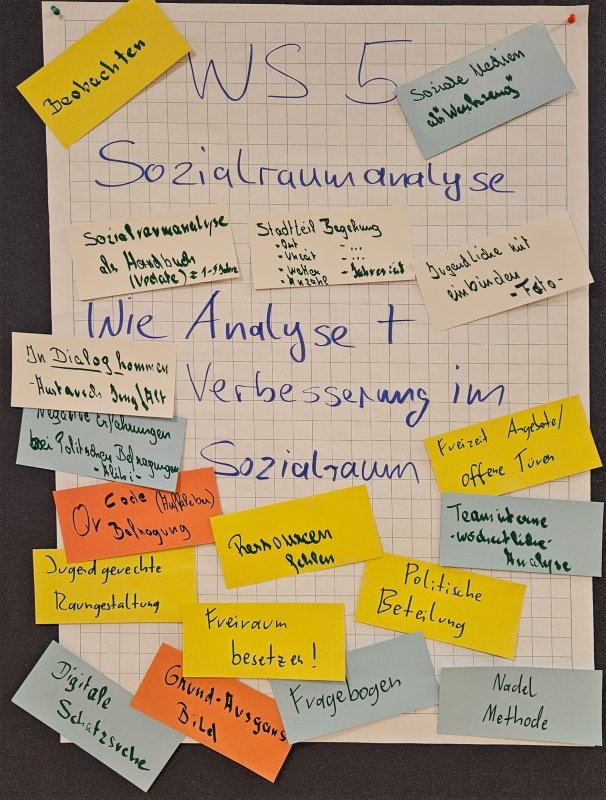 Beobachten
WS 5
Soziale Medien
als "Werkzeug"
Sozialraumanalyse
Sozialraumanalyse
als Handbuch
(Update) = 1-5 Jahre
Stadtteil Begehung
- Ort
- Uhrzeit
- Wetter
- Anzahl
- ...
- ...
- Jahreszeit
Jugendliche mit
einbinden
- Foto -
Wie Analyse +
Verbesserung im
Sozialraum
In Dialog kommen
- Austausch Jung/Alt
Negative Erfahrungen
bei Politischen Befragungen
- Alibi -
Freizeit Angebote/
offene Türen
Qr Code (Aufkleber)
Befragung
Ressourcen
fehlen
Teaminterne
- wöchentliche -
Analyse
Jugendgerechte
Raumgestaltung
Politische
Beteilung
Freiraum
besetzen!
Digitale
Schatzsuche
Grund-Ausgans
Bild
Fragebogen
Nadel
Methode